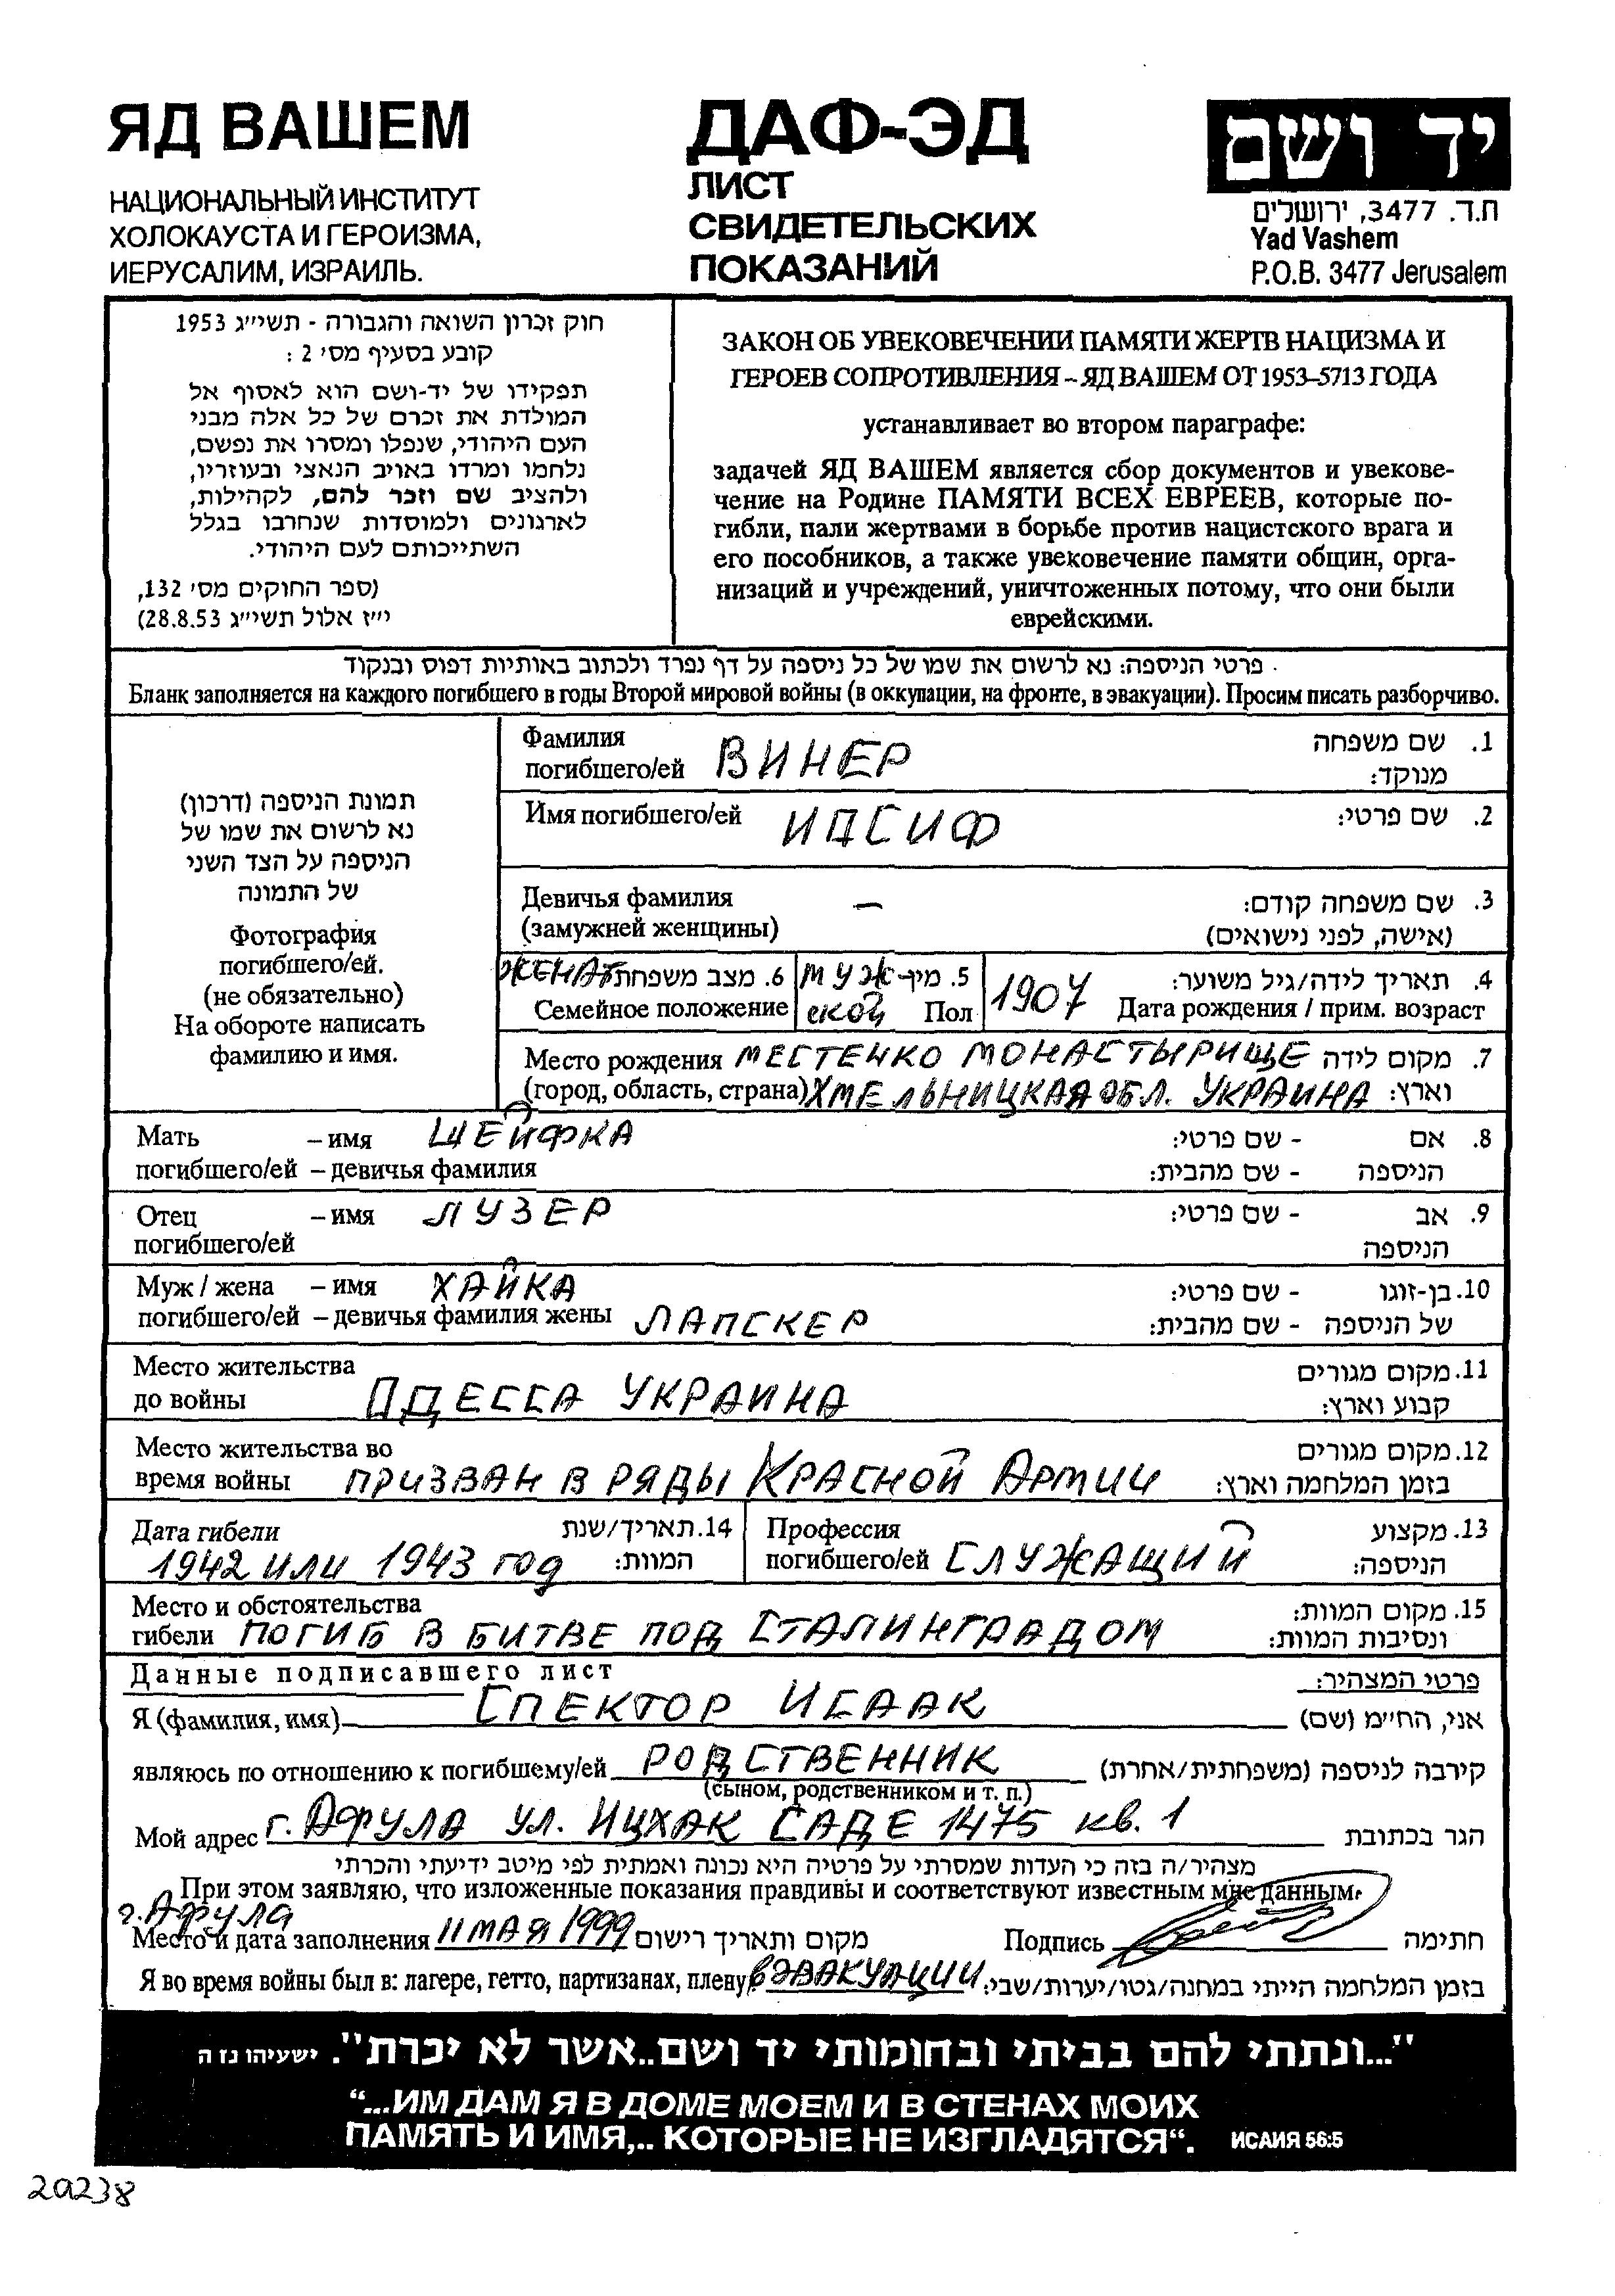 ЯД ВАШЕМ
НАЦИОНАЛЬНЫЙ ИНСТИТУТ
ХОЛОКАУСТА И ГЕРОИЗМА,
ИЕРУСАЛИМ, ИЗРАИЛЬ.
ДАФ-ЭД
ЛИСТ
СВИДЕТЕЛЬСКИХ
ПОКАЗАНИЙ
יד ושם
ת.ד. 3477, ירושלים
Yad Vashem
P.O.B. 3477 Jerusalem
חוק זכרון השואה והגבורה - תשי״ג 1953
קובע בסעיף מס׳ 2 :
תפקידו של יד-ושם הוא לאסוף אל
המולדת את זכרם של כל אלה מבני
העם היהודי, שנפלו ומסרו את נפשם,
נלחמו ומרדו באויב הנאצי ובעוזריו,
ולהציב שם וזכר להם, לקהילות,
לארגונים ולמוסדות שנחרבו בגלל
השתייכותם לעם היהודי.
(ספר החוקים מס׳ 132,
י״ז אלול תשי״ג 28.8.53)
ЗАКОН ОБ УВЕКОВЕЧЕНИИ ПАМЯТИ ЖЕРТВ НАЦИЗМА И
ГЕРОЕВ СОПРОТИВЛЕНИЯ – ЯД ВАШЕМ ОТ 1953–5713 ГОДА
устанавливает во втором параграфе:
задачей ЯД ВАШЕМ является сбор документов и увекове-
чение на Родине ПАМЯТИ ВСЕХ ЕВРЕЕВ, которые по-
гибли, пали жертвами в борьбе против нацистского врага и
его пособников, а также увековечение памяти общин, орга-
низаций и учреждений, уничтоженных потому, что они были
еврейскими.
פרטי הניספה: נא לרשום את שמו של כל ניספה על דף נפרד ולכתוב באותיות דפוס ובנקוד
Бланк заполняется на каждого погибшего в годы Второй мировой войны (в оккупации, на фронте, в эвакуации). Просим писать разборчиво.
תמונת הניספה (דרכון)
נא לרשום את שמו של
הניספה על הצד השני
של התמונה
Фотография
погибшего/ей.
(не обязательно)
На обороте написать
фамилию и имя.
Фамилия ВИНЕР 1. שם משפחה
погибшего/ей מנוקד:
Имя погибшего/ей ИОСИФ 2. שם פרטי:
Девичья фамилия – 3. שם משפחה קודם:
(замужней женщины) (אישה, לפני נישואים)
ЖЕНАТ 6. מצב משפחתי МУЖ- 5. מין 1907 4. תאריך לידה/גיל משוער:
Семейное положение СКОЙ Пол Дата рождения / прим. возраст
Место рождения МЕСТЕЧКО МОНАСТЫРИЩЕ 7. מקום לידה
(город, область, страна) ХМЕЛЬНИЦКАЯ ОБЛ. УКРАИНА וארץ:
Мать – имя ШЕЙФКА 8. אם - שם פרטי:
погибшего/ей – девичья фамилия הניספה - שם מהבית:
Отец – имя ЛУЗЕР 9. אב - שם פרטי:
погибшего/ей הניספה
Муж / жена – имя ХАЙКА 10. בן-זוגו - שם פרטי:
погибшего/ей – девичья фамилия жены ЛАПСКЕР של הניספה - שם מהבית:
Место жительства 11. מקום מגורים
до войны ОДЕССА УКРАИНА קבוע וארץ:
Место жительства во 12. מקום מגורים
время войны ПРИЗВАН В РЯДЫ КРАСНОЙ АРМИИ בזמן המלחמה וארץ:
Дата гибели 14. תאריך/שנת Профессия 13. מקצוע
1942 ИЛИ 1943 ГОД המוות: погибшего/ей СЛУЖАЩИЙ הניספה:
Место и обстоятельства 15. מקום המוות:
гибели ПОГИБ В БИТВЕ ПОД СТАЛИНГРАДОМ ונסיבות המוות:
Данные подписавшего лист פרטי המצהיר:
Я (фамилия, имя) СПЕКТОР ИСААК אני, החי״מ (שם)
являюсь по отношению к погибшему/ей РОДСТВЕННИК קירבה לניספה (משפחתית/אחרת)
(сыном, родственником и т. п.)
Мой адрес г. АФУЛА УЛ. ИЦХАК САДЕ 1475 КВ. 1 הגר בכתובת
מצהיר/ה בזה כי העדות שמסרתי על פרטיה היא נכונה ואמתית לפי מיטב ידיעתי והכרתי
При этом заявляю, что изложенные показания правдивы и соответствуют известным мне данным.
г. АФУЛА
Место и дата заполнения 11 МАЯ 1999 מקום ותאריך רישום Подпись חתימה
Я во время войны был в: лагере, гетто, партизанах, плену В ЭВАКУАЦИИ בזמן המלחמה הייתי במחנה/גטו/יערות/שבי:
"...ונתתי להם בביתי ובחומותי יד ושם..אשר לא יכרת". ישעיהו נז ה
“...ИМ ДАМ Я В ДОМЕ МОЕМ И В СТЕНАХ МОИХ
ПАМЯТЬ И ИМЯ,.. КОТОРЫЕ НЕ ИЗГЛАДЯТСЯ“. ИСАИЯ 56:5
20238